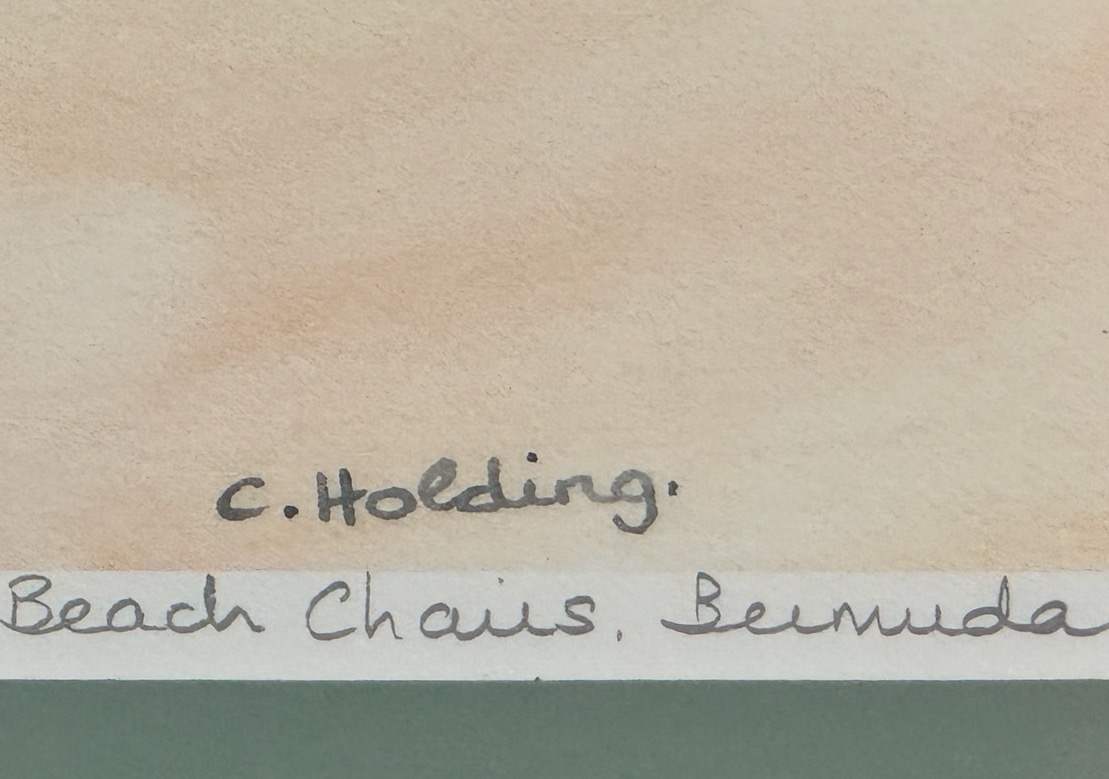 C. Holding.
Beach Chairs. Bermuda